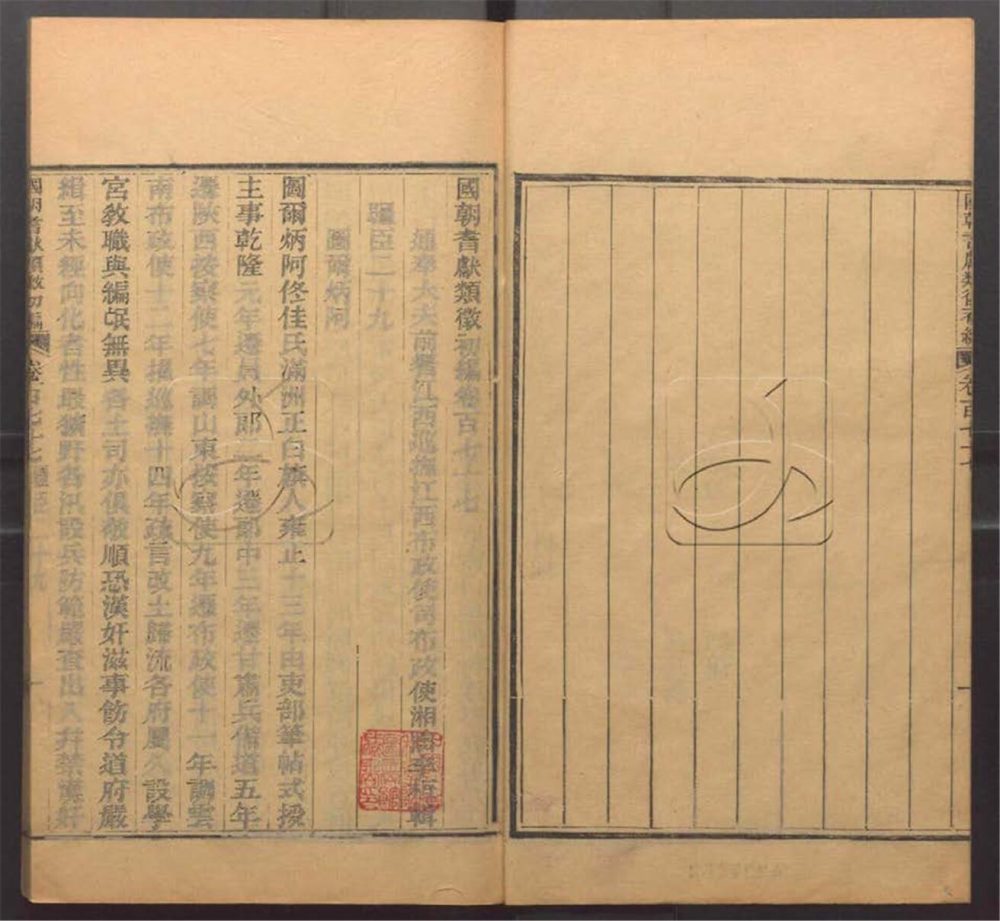 國朝耆獻類徵初編卷百七十七
通奉大夫前署江西巡撫江西布政使司布政使湘陰李桓輯
疆臣二十九
圖爾炳阿
圖爾炳阿佟佳氏滿洲正白旗人雍正十三年由吏部筆帖式授
主事乾隆元年遷員外郎二年遷郎中三年遷甘肅兵備道五年
遷陝西按察使七年調山東按察使九年遷布政使十一年調雲
南布政使十二年護巡撫十四年疏言改土歸流各府屬久設學
宮教職與編氓無異各土司亦俱敬順恐漢奸滋事飭令道府嚴
緝至未經向化者性最獷野各汛設兵防範嚴查出入并禁漢奸
國朝耆獻類徵初編 卷百七十七 疆臣二十九 一